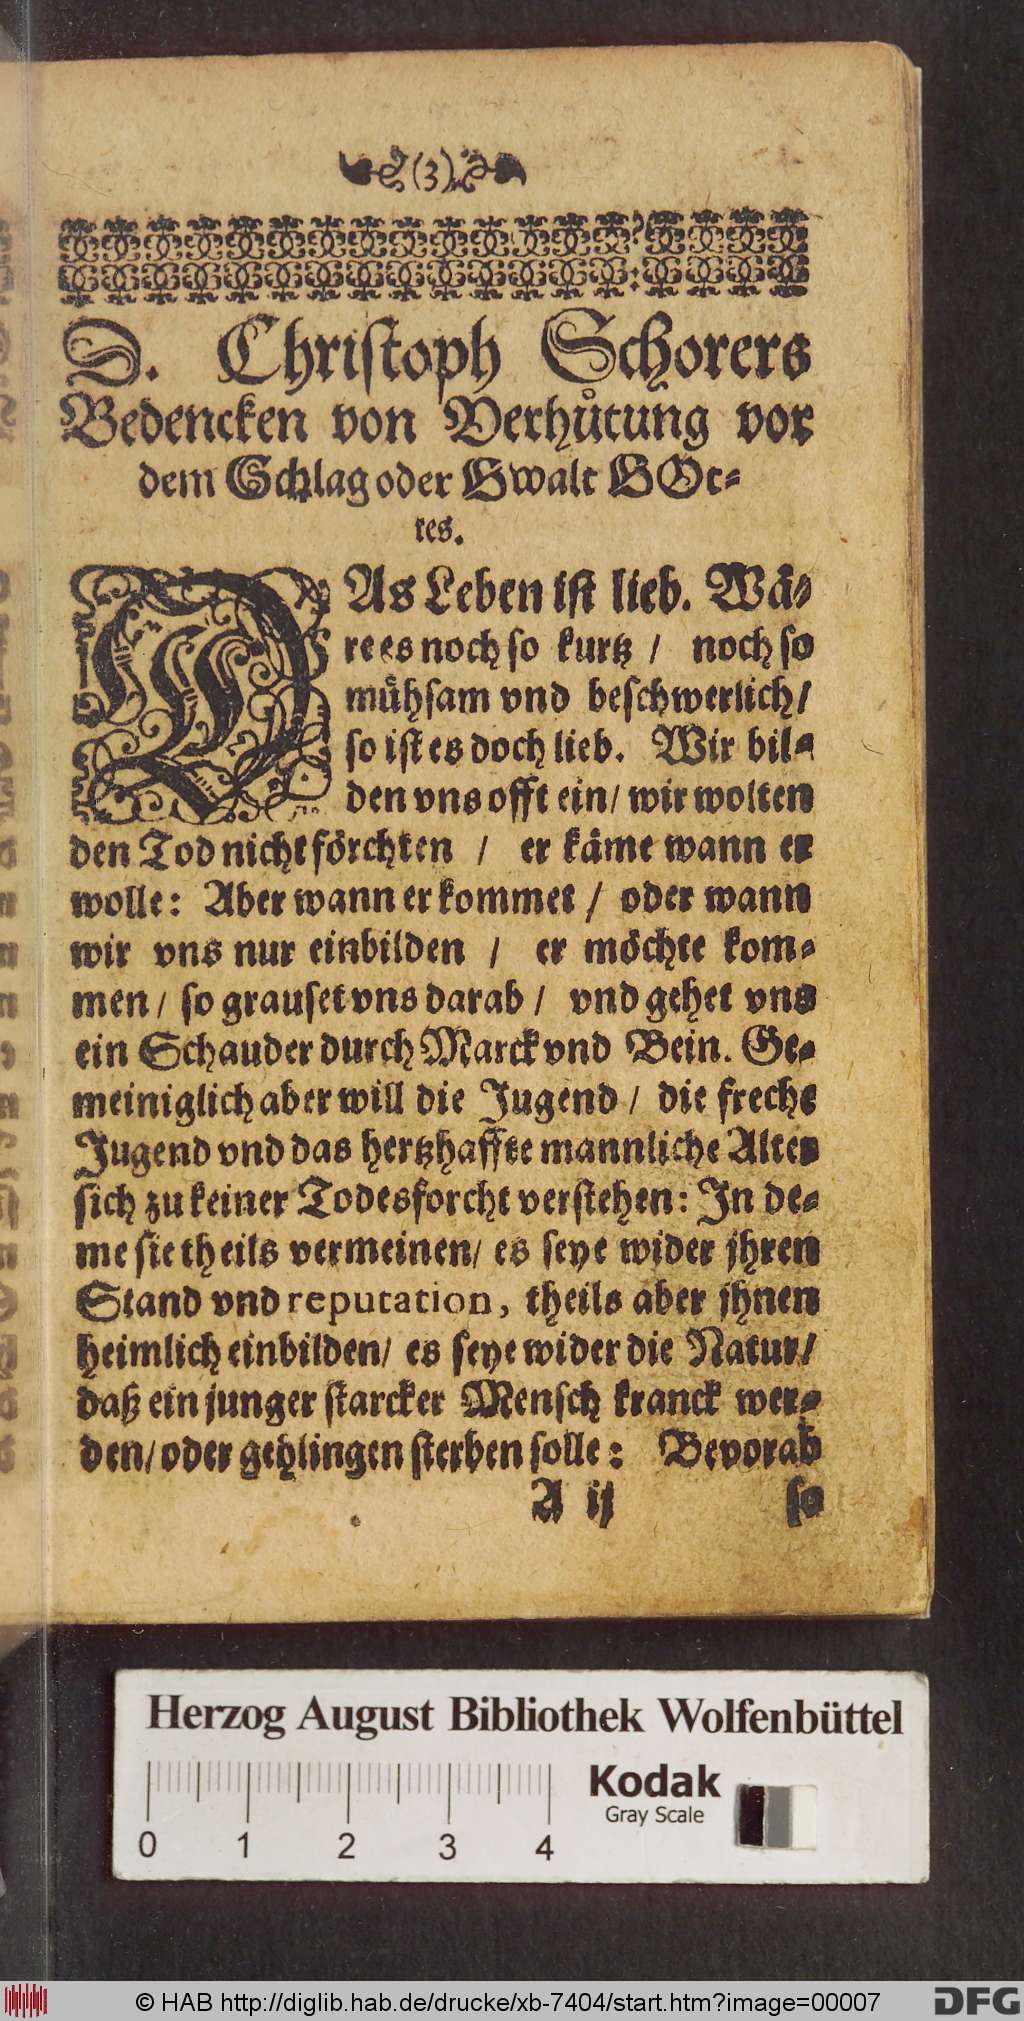 (3)
D. Christoph Schorers
Bedencken von Verhuͤtung vor
dem Schlag oder Gwalt GOt-
tes.
DAs Leben ist lieb. Wä-
re es noch so kurtz / noch so
mühsam vnd beschwerlich/
so ist es doch lieb. Wir bil-
den vns offt ein/ wir wolten
den Tod nicht förchten / er käme wann er
wolle: Aber wann er kommet / oder wann
wir vns nur einbilden / er möchte kom-
men/ so grauset vns darab / vnd gehet vns
ein Schauder durch Marck vnd Bein. Ge-
meiniglich aber will die Jugend / die freche
Jugend vnd das hertzhaffte mannliche Alter
sich zu keiner Todesforcht verstehen: In de-
me sie theils vermeinen/ es seye wider jhren
Stand vnd reputation, theils aber jhnen
heimlich einbilden/ es seye wider die Natur/
daß ein junger starcker Mensch kranck wer-
den/ oder gehlingen sterben solle: Bevorab
A ij so
Herzog August Bibliothek Wolfenbüttel
Kodak
Gray Scale
0 1 2 3 4
© HAB http://diglib.hab.de/drucke/xb-7404/start.htm?image=00007
DFG